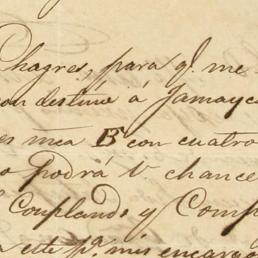 Chagres, para q.e me
con destino á Jamayca
mea B con cuatro
podrá tr chance
Couplands y Comp
este p.o mis encargo